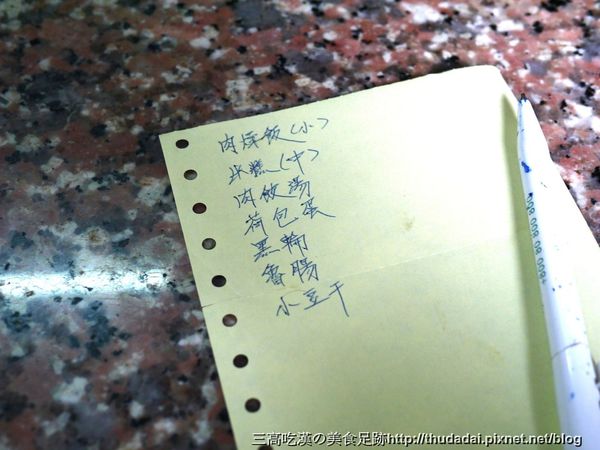 肉燥飯(小)
米糕(中)
肉餃湯
荷包蛋
黑輪
香腸
小豆干
三高吃漢の美食足跡http://thudadai.pixnet.net/blog